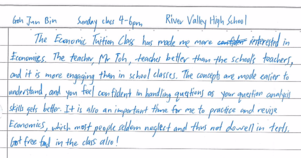 Goh Jun Bin Sunday class 4-6pm River Valley High School
The Economic Tuition Class has made me more interested in
Economics. The teacher, Mr Toh, teaches better than the school's teachers,
and it is more engaging than in school classes. The concepts are made easier to
understand, and you feel confident in handling questions as your question analysis
skills gets better. It is also an important time for me to practice and revise
Economics, which most people seldom neglect and thus not do well in tests.
Got free food in the class also!